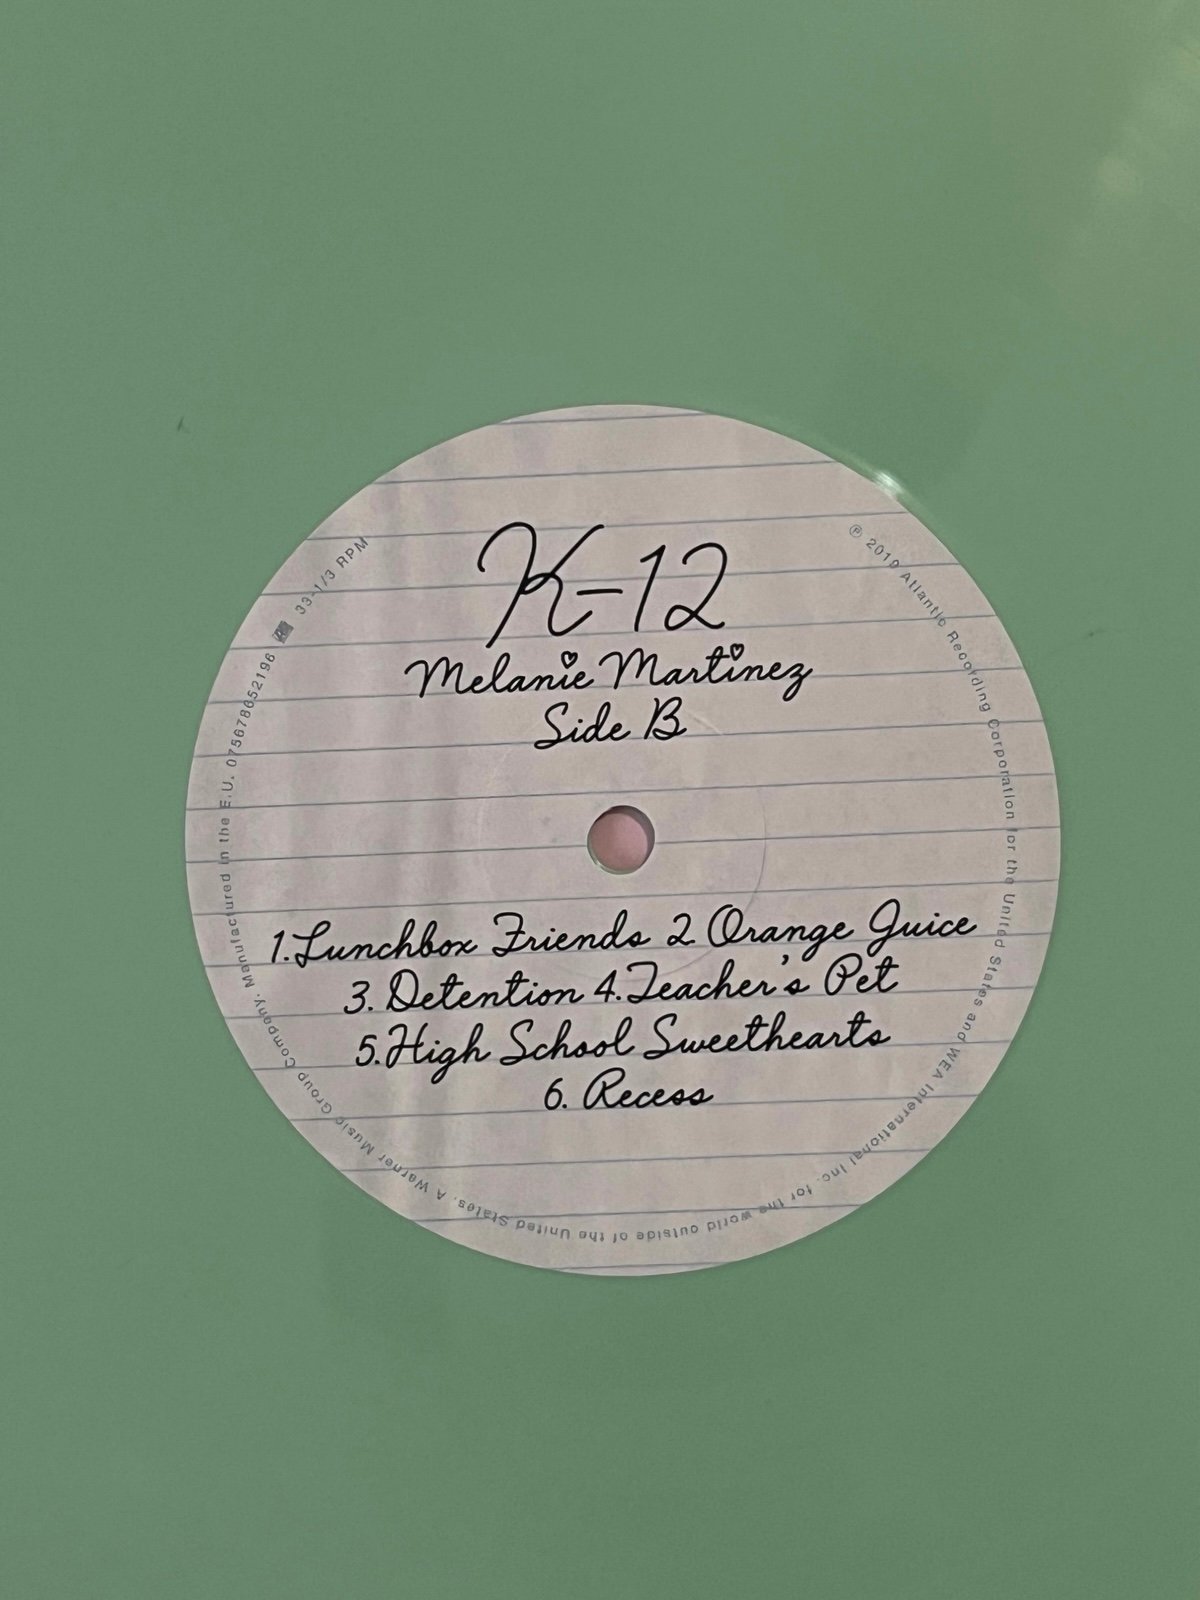 K-12
Melanie Martinez
Side B
1. Lunchbox Friends 2 Orange Juice
3. Detention 4. Teacher's Pet
5. High School Sweethearts
6. Recess
℗ 2019 Atlantic Recording Corporation for the United States and WEA International Inc. for the world outside of the United States. A Warner Music Group Company. Manufactured in the E.U. 075678652196
33-1/3 RPM